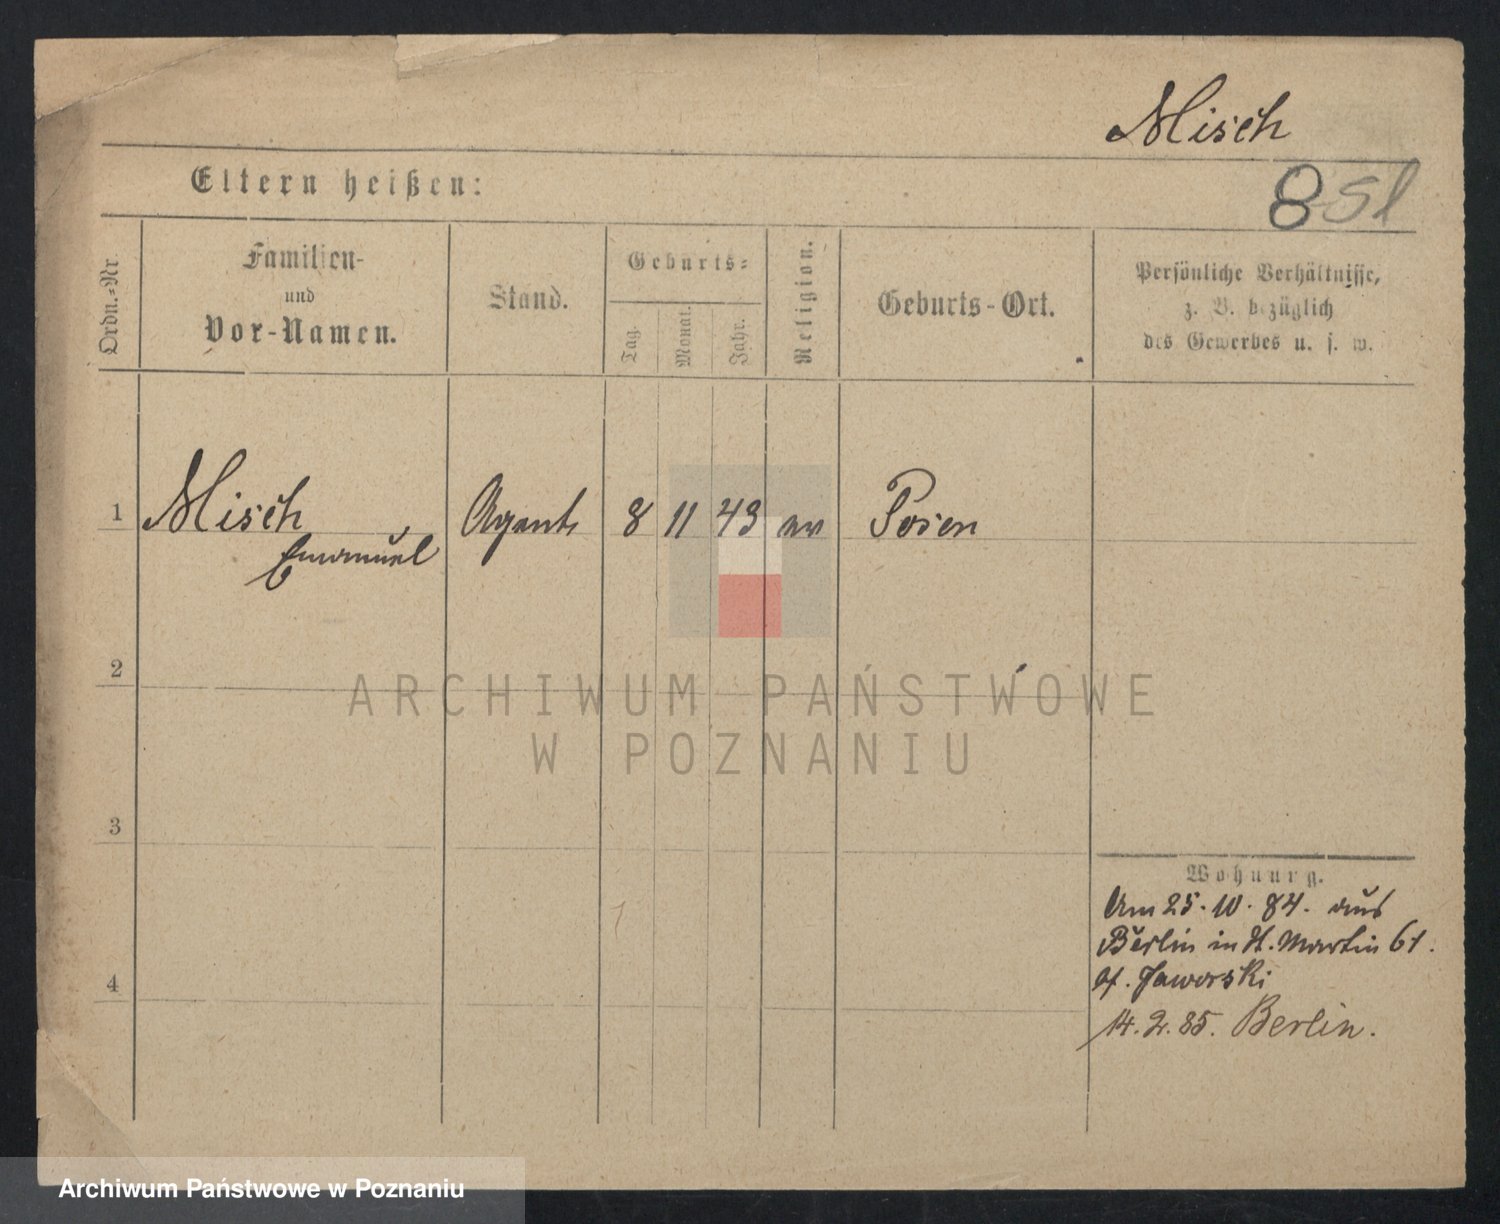 Misch
Eltern heißen:
8 Sl
Ordn.=Nr.
Familien-
und
Vor-Namen.
Stand.
Geburts=
Tag.
Monat.
Jahr.
Religion.
Geburts-Ort.
Persönliche Verhältnisse,
z. B. bezüglich
des Gewerbes u. s. w.
1 Misch Agent 8 11 43 ev Posen
Emanuel
2
ARCHIWUM PAŃSTWOWE
W POZNANIU
3
Wohnung.
Am 25. 10. 84. aus
Berlin in St. Martin 61.
Jaworski
4
14. 2. 85. Berlin.
Archiwum Państwowe w Poznaniu